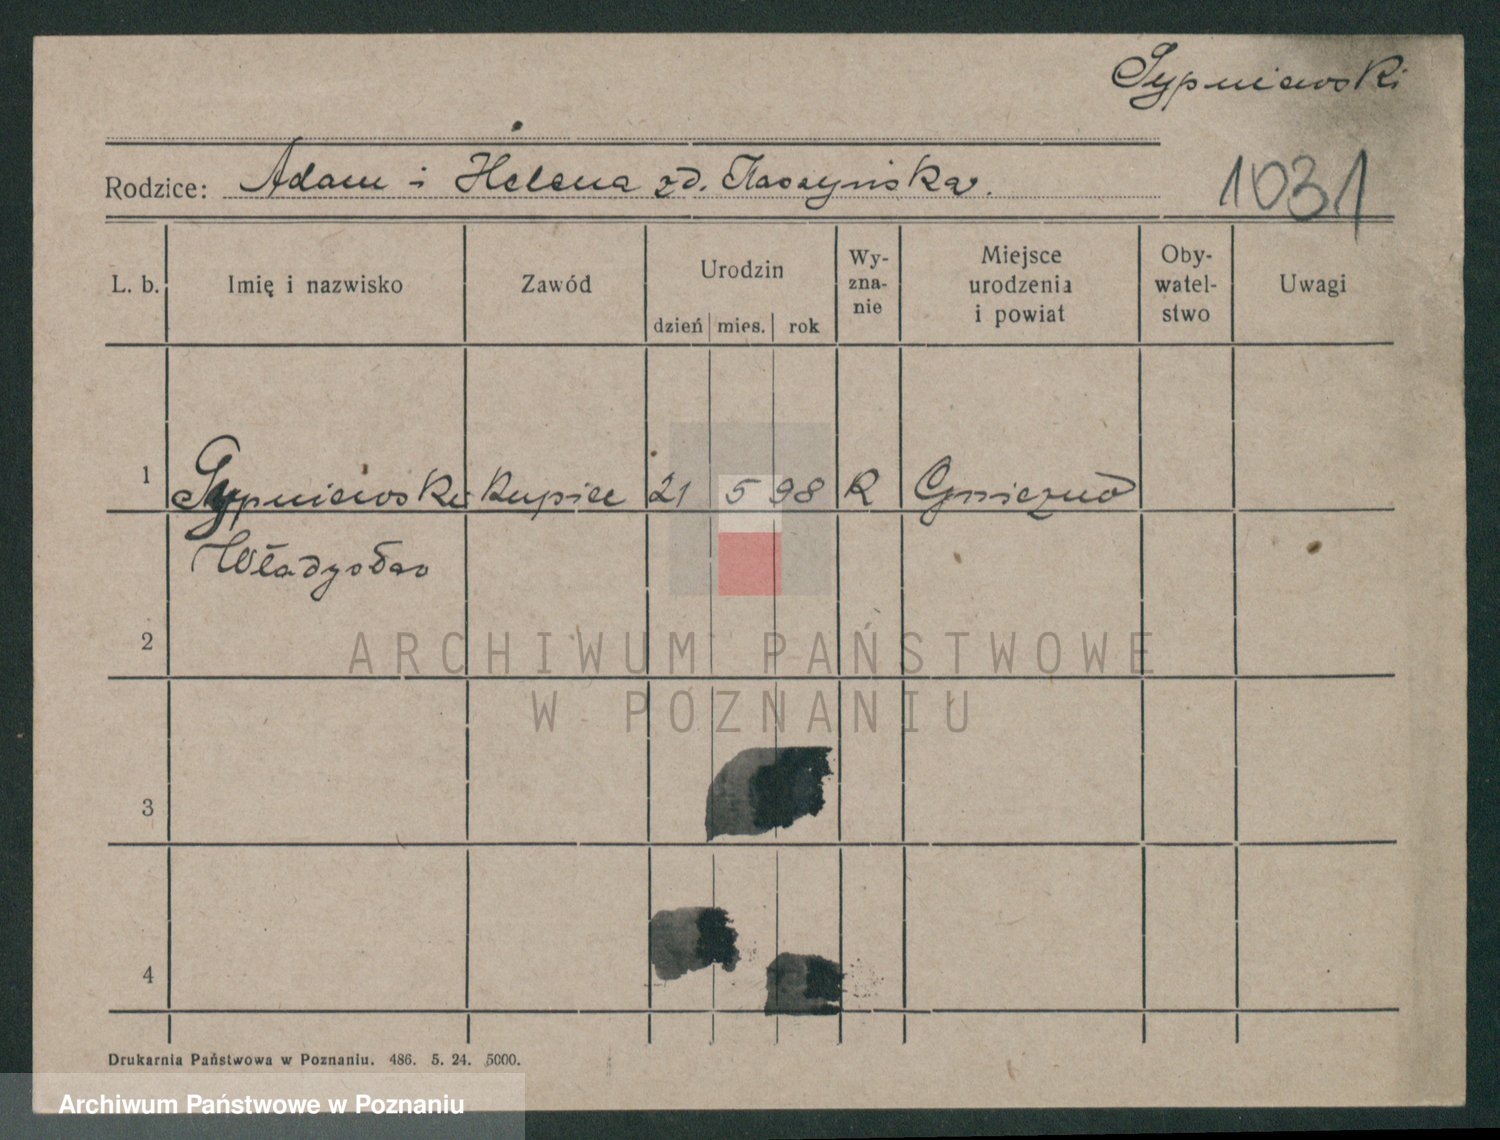 Sypniewski
1031
Rodzice: Adam i Helena zd. Kaczyńska.
L. b. Imię i nazwisko Zawód Urodzin dzień mies. rok Wy-zna-nie Miejsce urodzenia i powiat Oby-watel-stwo Uwagi
1 Sypniewski kupiec 21 5 98 R Gniezno
Władysław
2
ARCHIWUM PAŃSTWOWE
W POZNANIU
3
4
Drukarnia Państwowa w Poznaniu. 486. 5. 24. 5000.
Archiwum Państwowe w Poznaniu